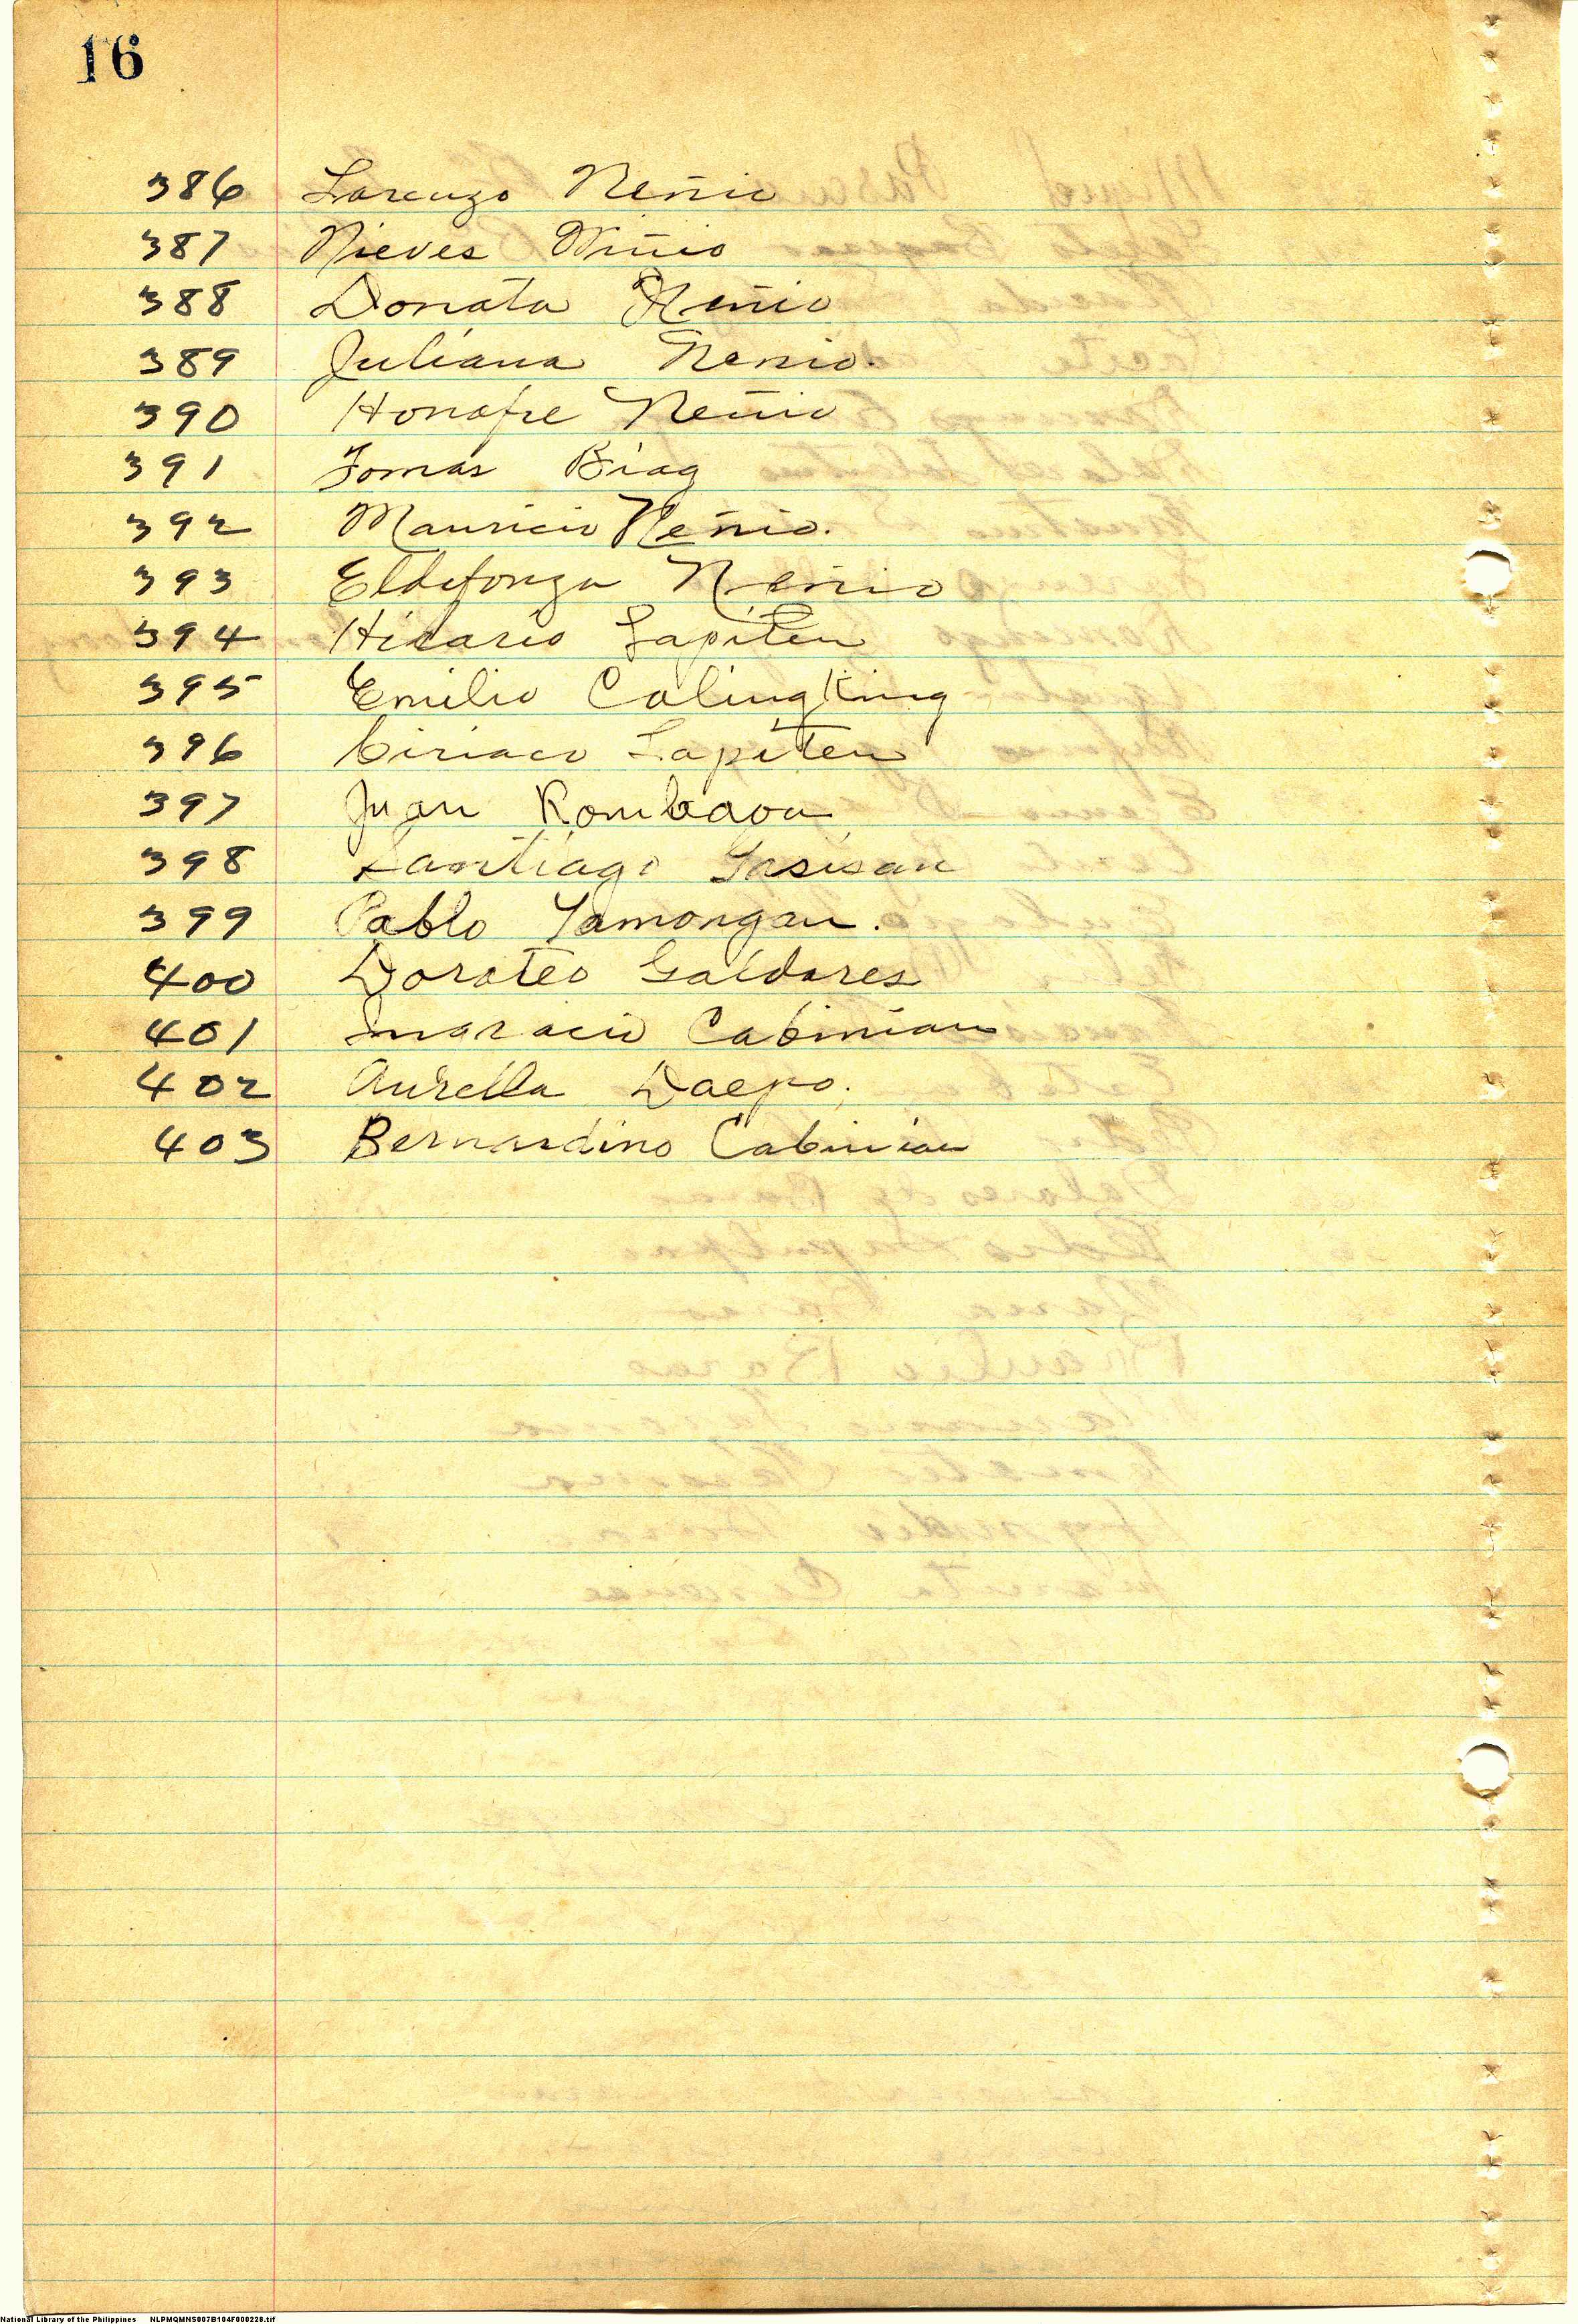 16
386 Lorenzo Neñio
387 Nieves Niñio
388 Donata Neñio
389 Juliana Nenio.
390 Honofre Neñio
391 Tomas Biag
392 Mauricio Neñio.
393 Eldefonza Neñio
394 Hilario Lapiten
395 Emilio Calingking
396 Ciriaco Lapiten
397 Juan Rombaoa
398 Santiago Gasisan
399 Pablo Yamongan.
400 Doroteo Galdores
401 Cabinian
402 Aurella Daepo.
403 Bernardino Cabinian
National Library of the Philippines NLPMQMNS007B104F000228.tif